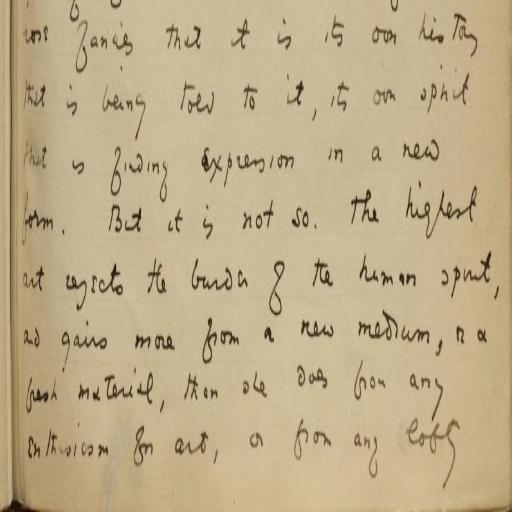 fancies that it is its own history
that is being told to it, its own spirit
that is finding expression in a new
form. But it is not so. The highest
art rejects the burden of the human spirit,
and gains more from a new medium, or a
fresh material, than she does from any
enthusiasm for art, or from any lofty